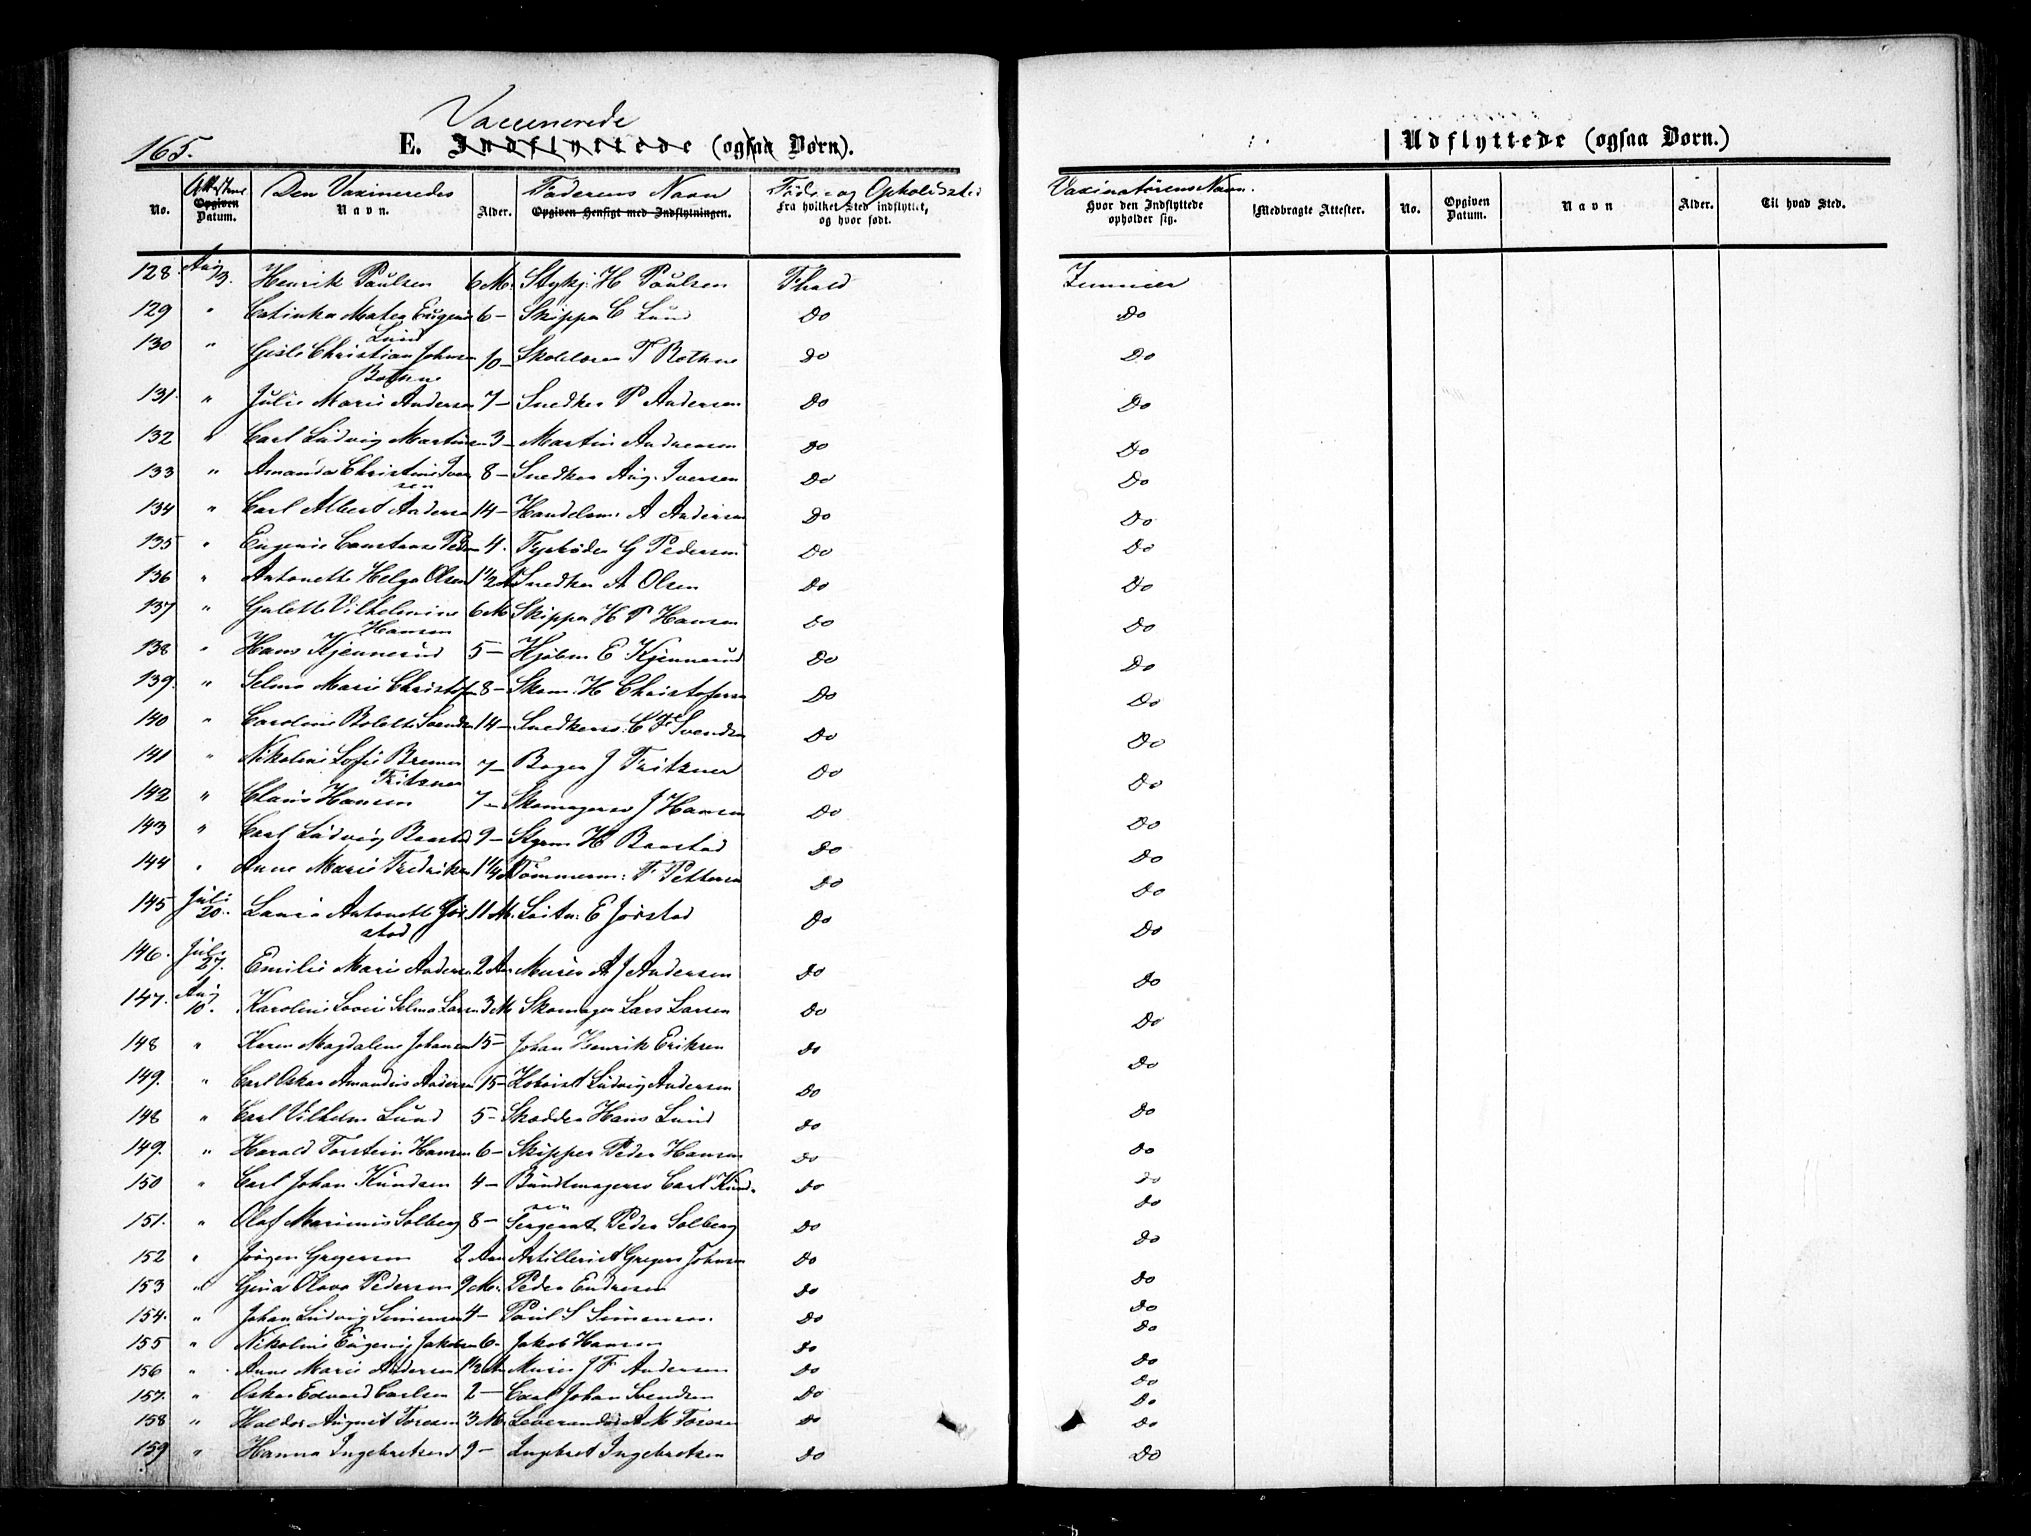 165.
Vaccinerede
E. Indflyttede (ogsaa Børn).
Udflyttede (ogsaa Børn.)
No.
Attestens
Opgiven
Datum.
Den Vaxineredes
Navn.
Alder.
Faderens Navn
Opgiven Hensigt med Indflytningen.
Føde og Opholdssted
Fra hvilket Sted indflyttet,
og hvor født.
Vaxinatørens Navn.
Hvor den Indflyttede
opholder sig.
Medbragte Attester.
No.
Opgiven
Datum.
Navn
Alder.
Til hvad Sted.
128 Aug 3. Henrik Paulsen 6 M. Stykj. H Paulsen Fhald
129 " Catinka Mathea Eugenie 6 - Skipper C Lund Do Do
Lund
130 " Gisle Christian Johnsen 10 - T Bothne Do Do
Bothne
131. " Julie Marie Andersen 7 - Snedker P Andersen Do Do
132 " Carl Ludvig Martinsen 3 - Martin Andersen Do Do
133 " Amanda Christine Iver 8 - Snedker Aug. Iversen Do Do
sen
134 " Carl Albert Anders 14 - Handelsm. A Andersen Do Do
135 " Eugenie Constanse Peder 4. G Pedersen Do Do
136 " Antonette Helga Olsen 1 1/2 A Snedker A Olsen Do Do
137 " Galette Vilhelmine 6 M Skipper H P Hansen Do Do
Hansen
138 " Hans Kjennerud 5 - Kjøbm E Kjennerud Do Do
139. " Selma Marie Christofer 8 - Skom. H Christofersen Do Do
140 " Caroline Bolette Svends 14 - Snedkersv. C F Svendsen Do Do
141 " Nikoline Sofie Bremer 7 - Bager J Fritzner Do Do
Fritzner
142 " Claus Hansen 7 - Skomagersv J Hansen Do Do
143 " Carl Ludvig Baastad 9 - Styrm H Baastad Do Do
144 " Anne Marie Fredriks 1 1/4 A Tømmerm: F Petters Do Do
145 Juli 20. Laura Antonette Jør 11 M. Løitn: E Jørstad Do Do
stad
146. Juli 27. Emilie Marie Anders 2 A Murer A J Andersen Do Do
147. Aug 10. Karoline Lovise Selma Larsen 3 M Skomager Lars Larsen Do Do
148 " Karen Magdalene Johansen 15 - Johan Henrik Eriksen Do Do
149. " Carl Oskar Amandus Anders 15 - Ludvig Andersen Do Do
148 " Carl Vilhelm Lund 5 - Skrædder Hans Lund Do Do
149. " Harald Torstein Hansen 6 - Skipper Peder Hansen Do Do
150 " Carl Johan Knudsen 4 - Bundtmagersv Carl Knud- Do Do
sen
151. " Olaf Marinius Solberg 8 - Sergeant Peder Solberg Do Do
152 " Jørgen Gregersen 2 Aar Artillerist Gregers Johnsen Do Do
153 " Gina Olava Pedersen 9 M. Peder Endresen Do Do
154. " Johan Ludvig Simensen 4 - Poul S Simensen. Do Do
155 " Nikoline Eugenie Jakobsen 6 - Jakob Hansen Do Do
156 " Anne Marie Andersen 1 1/2 A Murer J F Andersen Do Do
157. " Oskar Edvard Carlsen 2 - Carl Johan Svendsen Do Do
158 " Haldor August Toresen 3 M. Leverandør A M Toresen Do Do
159 " Hanna Ingebretsen 9 - Ingebret Ingebretsen Do Do